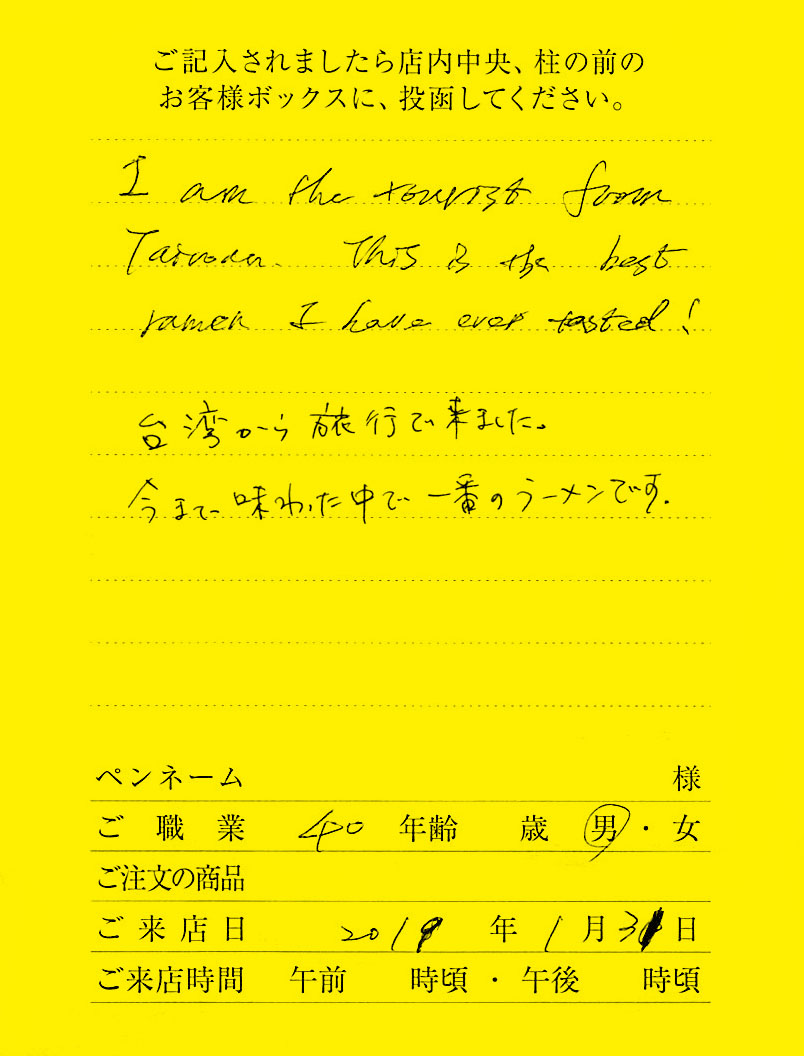 ご記入されましたら店内中央、柱の前の
お客様ボックスに、投函してください。
I am the tourist from
Taiwan. This is the best
ramen I have ever tasted!
台湾から旅行で来ました。
今まで味わった中で一番のラーメンです.
ペンネーム 様
ご職業 40 年齢 歳 男・女
ご注文の商品
ご来店日 2019 年 1月31日
ご来店時間 午前 時頃・午後 時頃